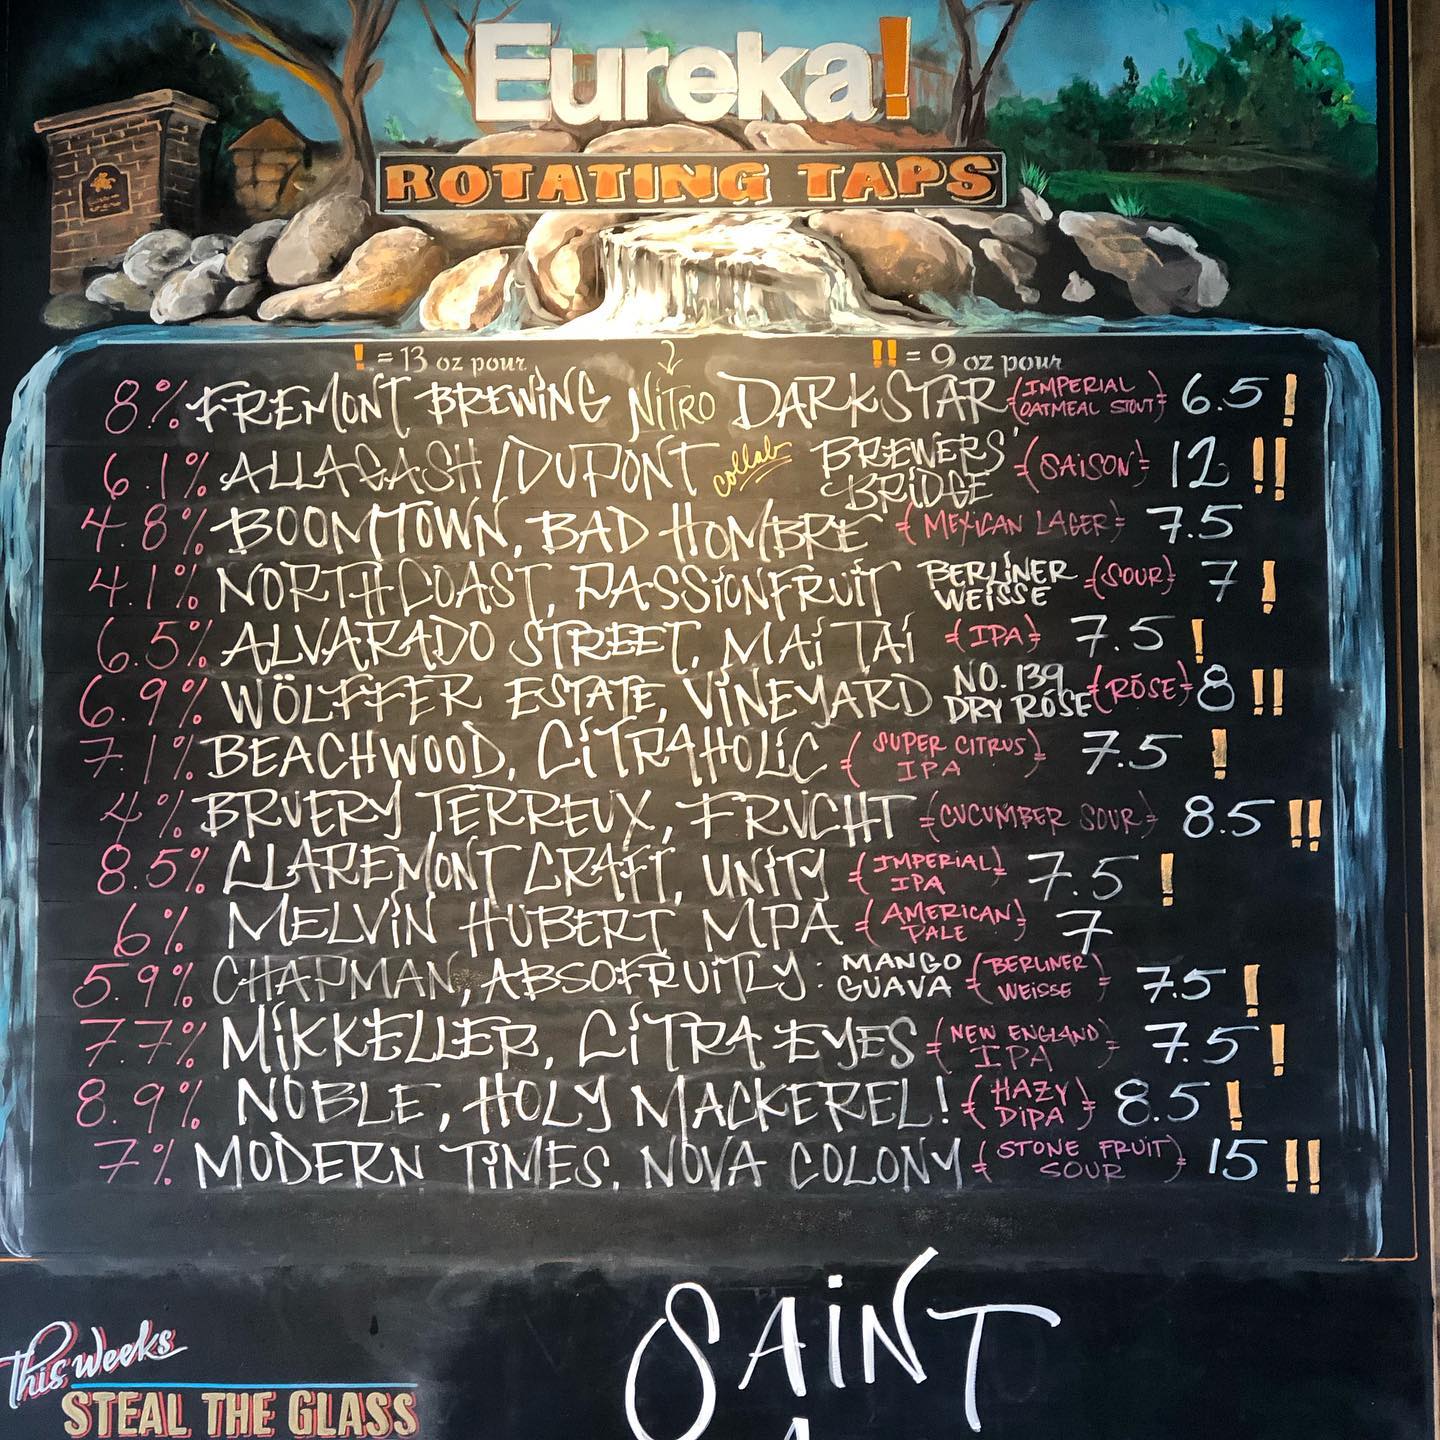 Eureka!
ROTATING TAPS
! = 13 oz pour !! = 9 oz pour
8% FREMONT BREWING NITRO DARK STAR (IMPERIAL OATMEAL STOUT) 6.5 !
6.1% ALLAGASH/DUPONT collab BREWERS' BRIDGE (SAISON) 12 !!
4.8% BOOMTOWN, BAD HOMBRE (MEXICAN LAGER) 7.5
4.1% NORTH COAST, PASSIONFRUIT BERLINER WEISSE (SOUR) 7 !
6.5% ALVARADO STREET, MAI TAI (IPA) 7.5 !
6.9% WÖLFFER ESTATE, VINEYARD NO. 139 DRY RÓSE (RÓSE) 8 !!
7.1% BEACHWOOD, CITRAHOLIC (SUPER CITRUS IPA) 7.5 !
4% BRUERY TERREUX, FRUCHT (CUCUMBER SOUR) 8.5 !!
8.5% CLAREMONT CRAFT, UNITY (IMPERIAL IPA) 7.5 !
6% MELVIN HUBERT MPA (AMERICAN PALE) 7
5.9% CHAPMAN, ABSOFRUITLY: MANGO GUAVA (BERLINER WEISSE) 7.5 !
7.7% MIKKELLER, CITRA EYES (NEW ENGLAND IPA) 7.5 !
8.9% NOBLE, HOLY MACKEREL! (HAZY DIPA) 8.5 !
7% MODERN TIMES, NOVA COLONY (STONE FRUIT SOUR) 15 !!
SAINT
This Weeks
STEAL THE GLASS